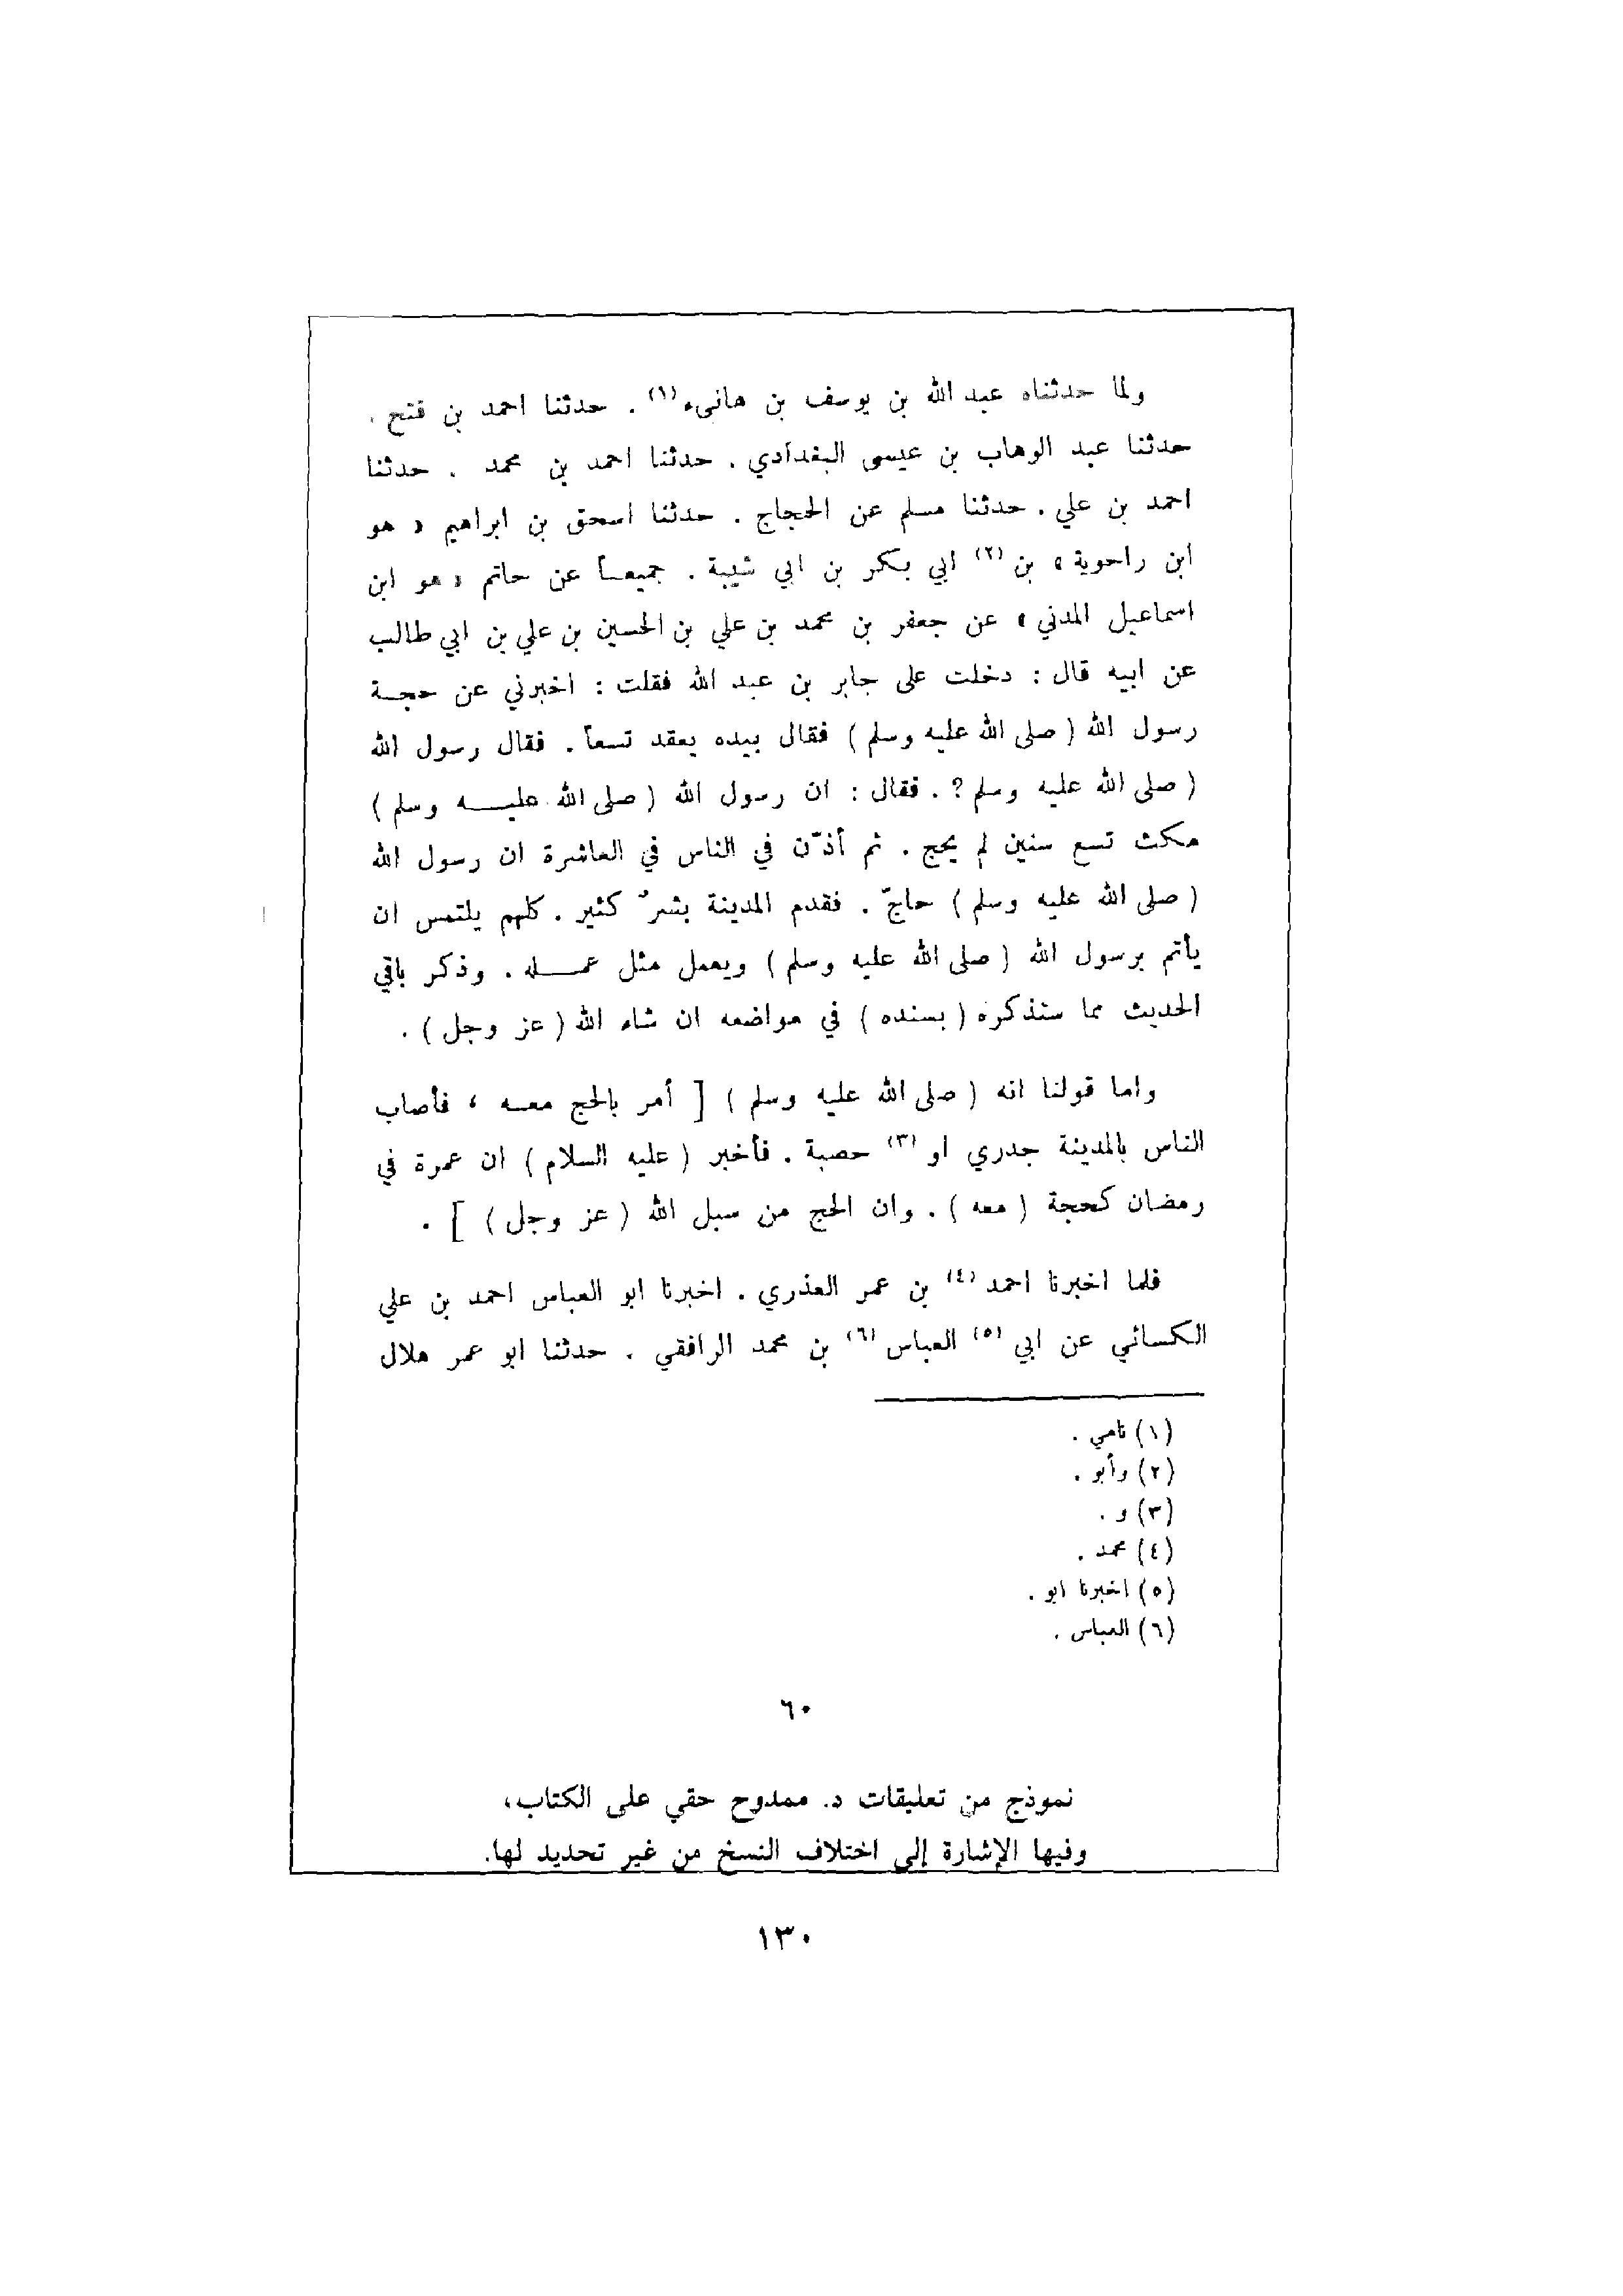 ولما حدثناه عبد الله بن يوسف بن هانىء (١) . حدثنا احمد بن فتح .
حدثنا عبد الوهاب بن عيسى البغدادي . حدثنا احمد بن محمد . حدثنا
احمد بن علي . حدثنا مسلم عن الحجاج . حدثنا اسحق بن ابراهيم « هو
ابن راحوية » بن (٢) ابي بكر بن ابي شيبة . جميعاً عن حاتم « هو ابن
اسماعيل المدني » عن جعفر بن محمد بن علي بن الحسين بن علي بن ابي طالب
عن ابيه قال : دخلت على جابر بن عبد الله فقلت : اخبرني عن حجة
رسول الله ( صلى الله عليه وسلم ) فقال بيده يعقد تسعاً . فقال رسول الله
( صلى الله عليه وسلم ؟ . فقال : ان رسول الله ( صلى الله عليه وسلم )
مكث تسع سنين لم يحج . ثم أذّن في الناس في العاشرة ان رسول الله
( صلى الله عليه وسلم ) حاجّ . فقدم المدينة بشرٌ كثير . كلهم يلتمس ان
يأتم برسول الله ( صلى الله عليه وسلم ) ويعمل مثل عمله . وذكر باقي
الحديث مما سنذكره ( بسنده ) في مواضعه ان شاء الله ( عز وجل ) .
واما قولنا انه ( صلى الله عليه وسلم ) [ أمر بالحج معه ، فأصاب
الناس بالمدينة جدري او (٣) حصبة . فأخبر ( عليه السلام ) ان عمرة في
رمضان كحجة ( معه ) . وان الحج من سبل الله ( عز وجل ) ] .
فلما اخبرنا احمد (٤) بن عمر العذري . اخبرنا ابو العباس احمد بن علي
الكسائي عن ابي (٥) العباس (٦) بن محمد الرافقي . حدثنا ابو عمر هلال
(١) نامي .
(٢) وأبو .
(٣) و .
(٤) محمد .
(٥) اخبرنا ابو .
(٦) العباس .
٦٠
نموذج من تعليقات د. ممدوح حقي على الكتاب،
وفيها الإشارة إلى اختلاف النسخ من غير تحديد لها.
١٣٠